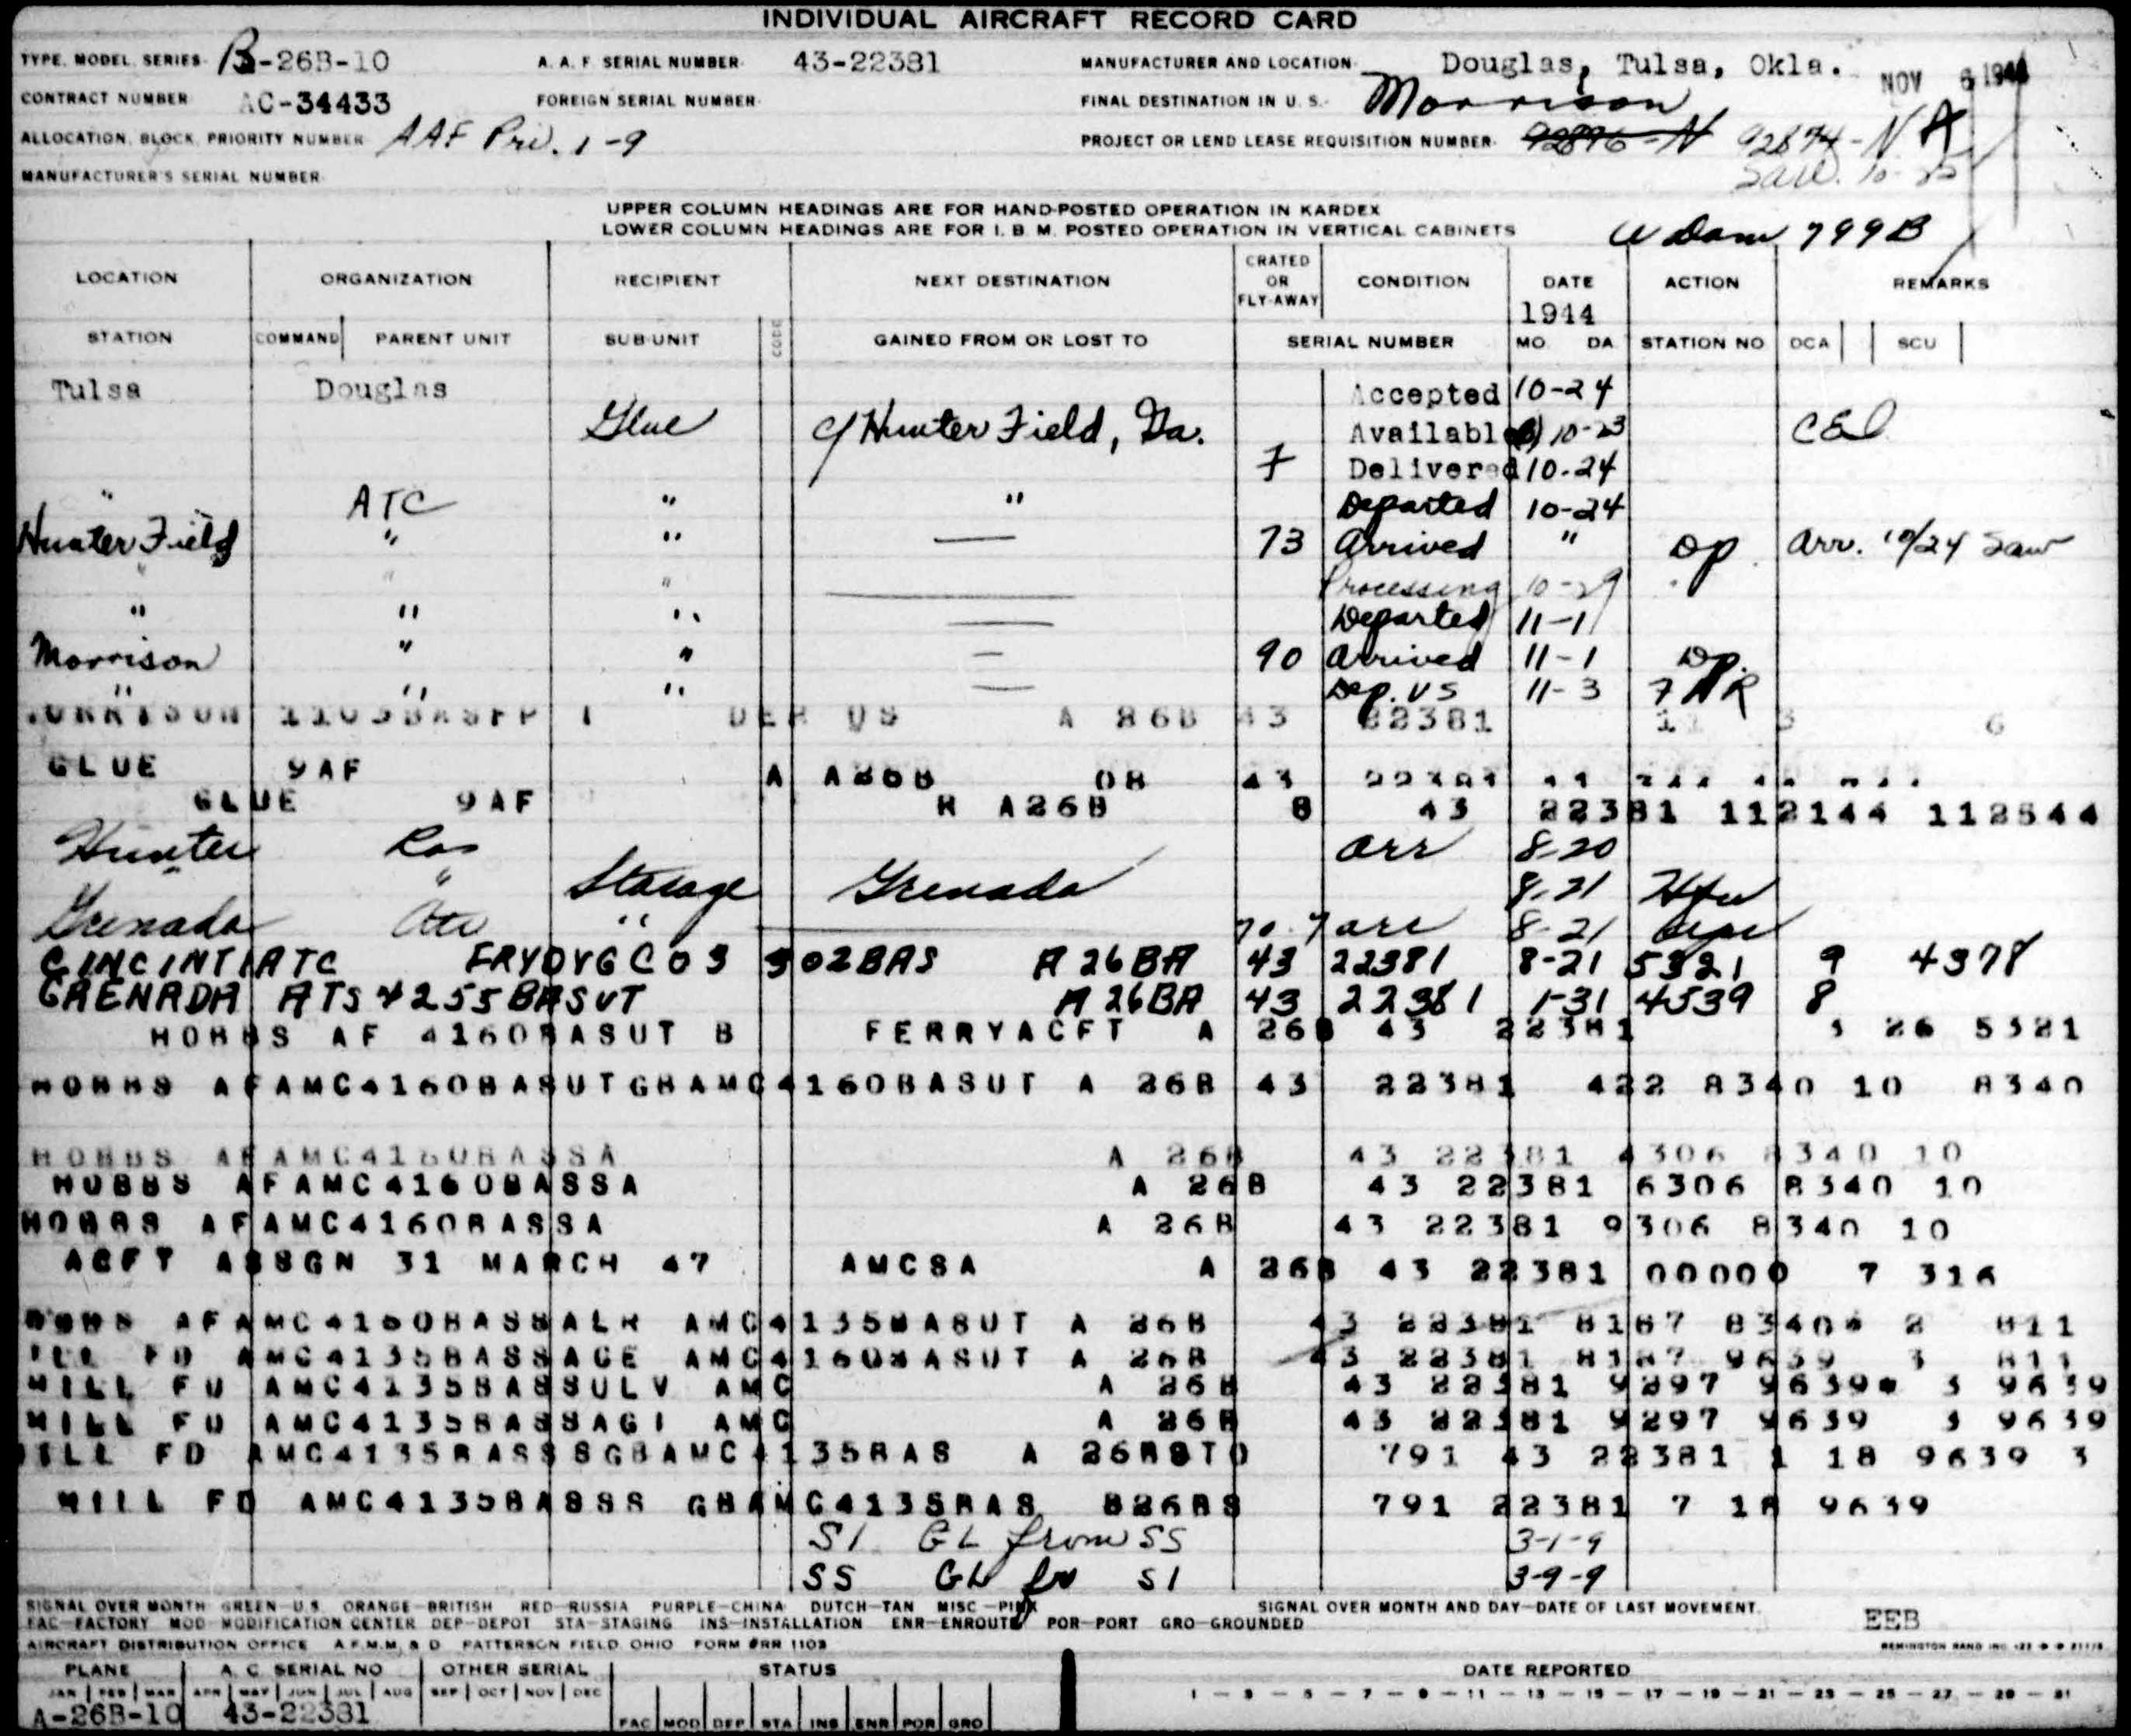 INDIVIDUAL AIRCRAFT RECORD CARD
TYPE, MODEL, SERIES B-26B-10 A. A. F. SERIAL NUMBER 43-22381 MANUFACTURER AND LOCATION Douglas, Tulsa, Okla. NOV 6 1944
CONTRACT NUMBER AC-34433 FOREIGN SERIAL NUMBER FINAL DESTINATION IN U. S. Morrison
ALLOCATION, BLOCK, PRIORITY NUMBER AAF Pri. 1-9 PROJECT OR LEND LEASE REQUISITION NUMBER 92896-N 92874-N A
MANUFACTURER'S SERIAL NUMBER
UPPER COLUMN HEADINGS ARE FOR HAND-POSTED OPERATION IN KARDEX
LOWER COLUMN HEADINGS ARE FOR I. B. M. POSTED OPERATION IN VERTICAL CABINETS 799B
LOCATION ORGANIZATION RECIPIENT NEXT DESTINATION CRATED OR FLY-AWAY CONDITION DATE ACTION REMARKS
1944
STATION COMMAND PARENT UNIT SUB-UNIT CODE GAINED FROM OR LOST TO SERIAL NUMBER MO. DA. STATION NO. DCA SCU
Tulsa Douglas Accepted 10-24
Glue Hunter Field, Ga. Available 10-23
7 Delivered 10-24
" ATC " " Departed 10-24
Hunter Field " " — 73 Arrived " Dp. Arr. 10/24 Saw
" " " — Processing 10-29
" " " — Departed 11-1
Morrison " " — 90 Arrived 11-1 Dp.
" " " — Dep. US 11-3
MORRISON 1103BASFP 1 DEP US A 26B 43 22381 11 3 6
GLUE 9AF A A26B 08 43 22381
GLUE 9AF R A26B 8 43 22381 112144 112544
Hunter arr 8-20
" Storage Grenada 8-21
Grenada " arr 8-21
CINCINTI ATC FRYDVG C03 902BAS A 26BA 43 22381 8-21 5321 9 4378
GRENADA ATS 4255BASUT A 26BA 43 22381 1-31 4539 8
HOBBS AF 4160BASUT B FERRYACFT A 26B 43 22381 3 26 5321
HOBBS AFAMC4160BASUTGBAMC4160BASUT A 26B 43 22381 422 8340 10 8340
HOBBS AFAMC4160BASSA A 26B 43 22381 4306 8340 10
HOBBS AFAMC4160BASSA A 26B 43 22381 6306 8340 10
HOBBS AFAMC4160BASSA A 26B 43 22381 9306 8340 10
ACFT ASSGN 31 MARCH 47 AMCSA A 26B 43 22381 00000 7 316
HOBBS AFAMC4160BASSALR AMC4135BASUT A 26B 43 22381 8167 8340* 2 811
HILL FD AMC4135BASSAGE AMC4160BASUT A 26B 43 22381 8187 9639 3 811
HILL FD AMC4135BASSULV AMC A 26B 43 22381 9297 9639* 3 9639
HILL FD AMC4135BASSAGI AMC A 26B 43 22381 9297 9639 3 9639
HILL FD AMC4135BASSSGBAMC4135BAS A 26BSTO 791 43 22381 1 18 9639 3
HILL FD AMC4135BASSS GBAMC4135BAS B26BS 791 22381 7 18 9639
S1 GL from SS 3-1-9
SS GL fr S1 3-9-9
SIGNAL OVER MONTH GREEN—U.S. ORANGE—BRITISH RED—RUSSIA PURPLE—CHINA DUTCH—TAN MISC—PINK SIGNAL OVER MONTH AND DAY—DATE OF LAST MOVEMENT.
FAC—FACTORY MOD—MODIFICATION CENTER DEP—DEPOT STA—STAGING INS—INSTALLATION ENR—ENROUTE POR—PORT GRO—GROUNDED EEB
AIRCRAFT DISTRIBUTION OFFICE A.F.M.M. & D. PATTERSON FIELD, OHIO FORM #RR 1103 REMINGTON RAND INC.
PLANE A. C. SERIAL NO OTHER SERIAL STATUS DATE REPORTED
JAN FEB MAR APR MAY JUN JUL AUG SEP OCT NOV DEC 1 — 3 — 5 — 7 — 9 — 11 — 13 — 15 — 17 — 19 — 21 — 23 — 25 — 27 — 29 — 31
A-26B-10 43-22381 FAC MOD DEP STA INS ENR POR GRO